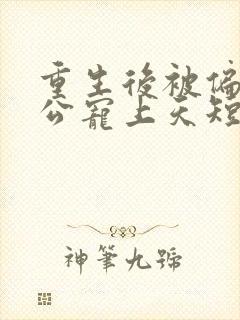 重生後被偏
公寵上天短
神筆九號